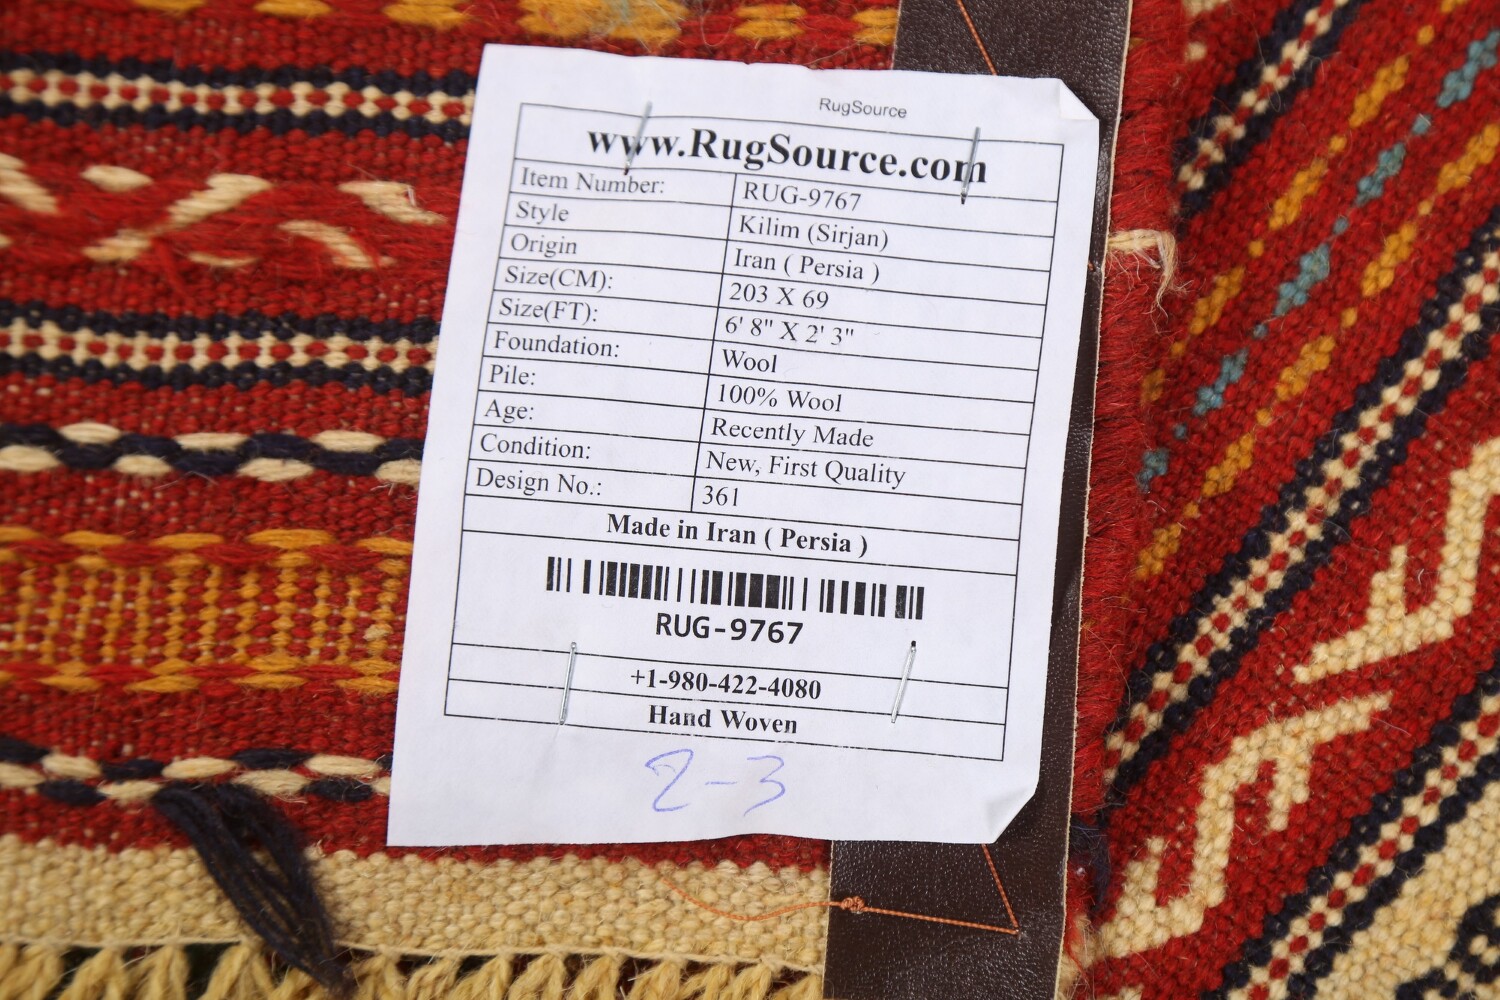 RugSource
www.RugSource.com
Item Number: RUG-9767
Style Kilim (Sirjan)
Origin Iran ( Persia )
Size(CM): 203 X 69
Size(FT): 6' 8" X 2' 3"
Foundation: Wool
Pile: 100% Wool
Age: Recently Made
Condition: New, First Quality
Design No.: 361
Made in Iran ( Persia )
RUG-9767
+1-980-422-4080
Hand Woven
2-3